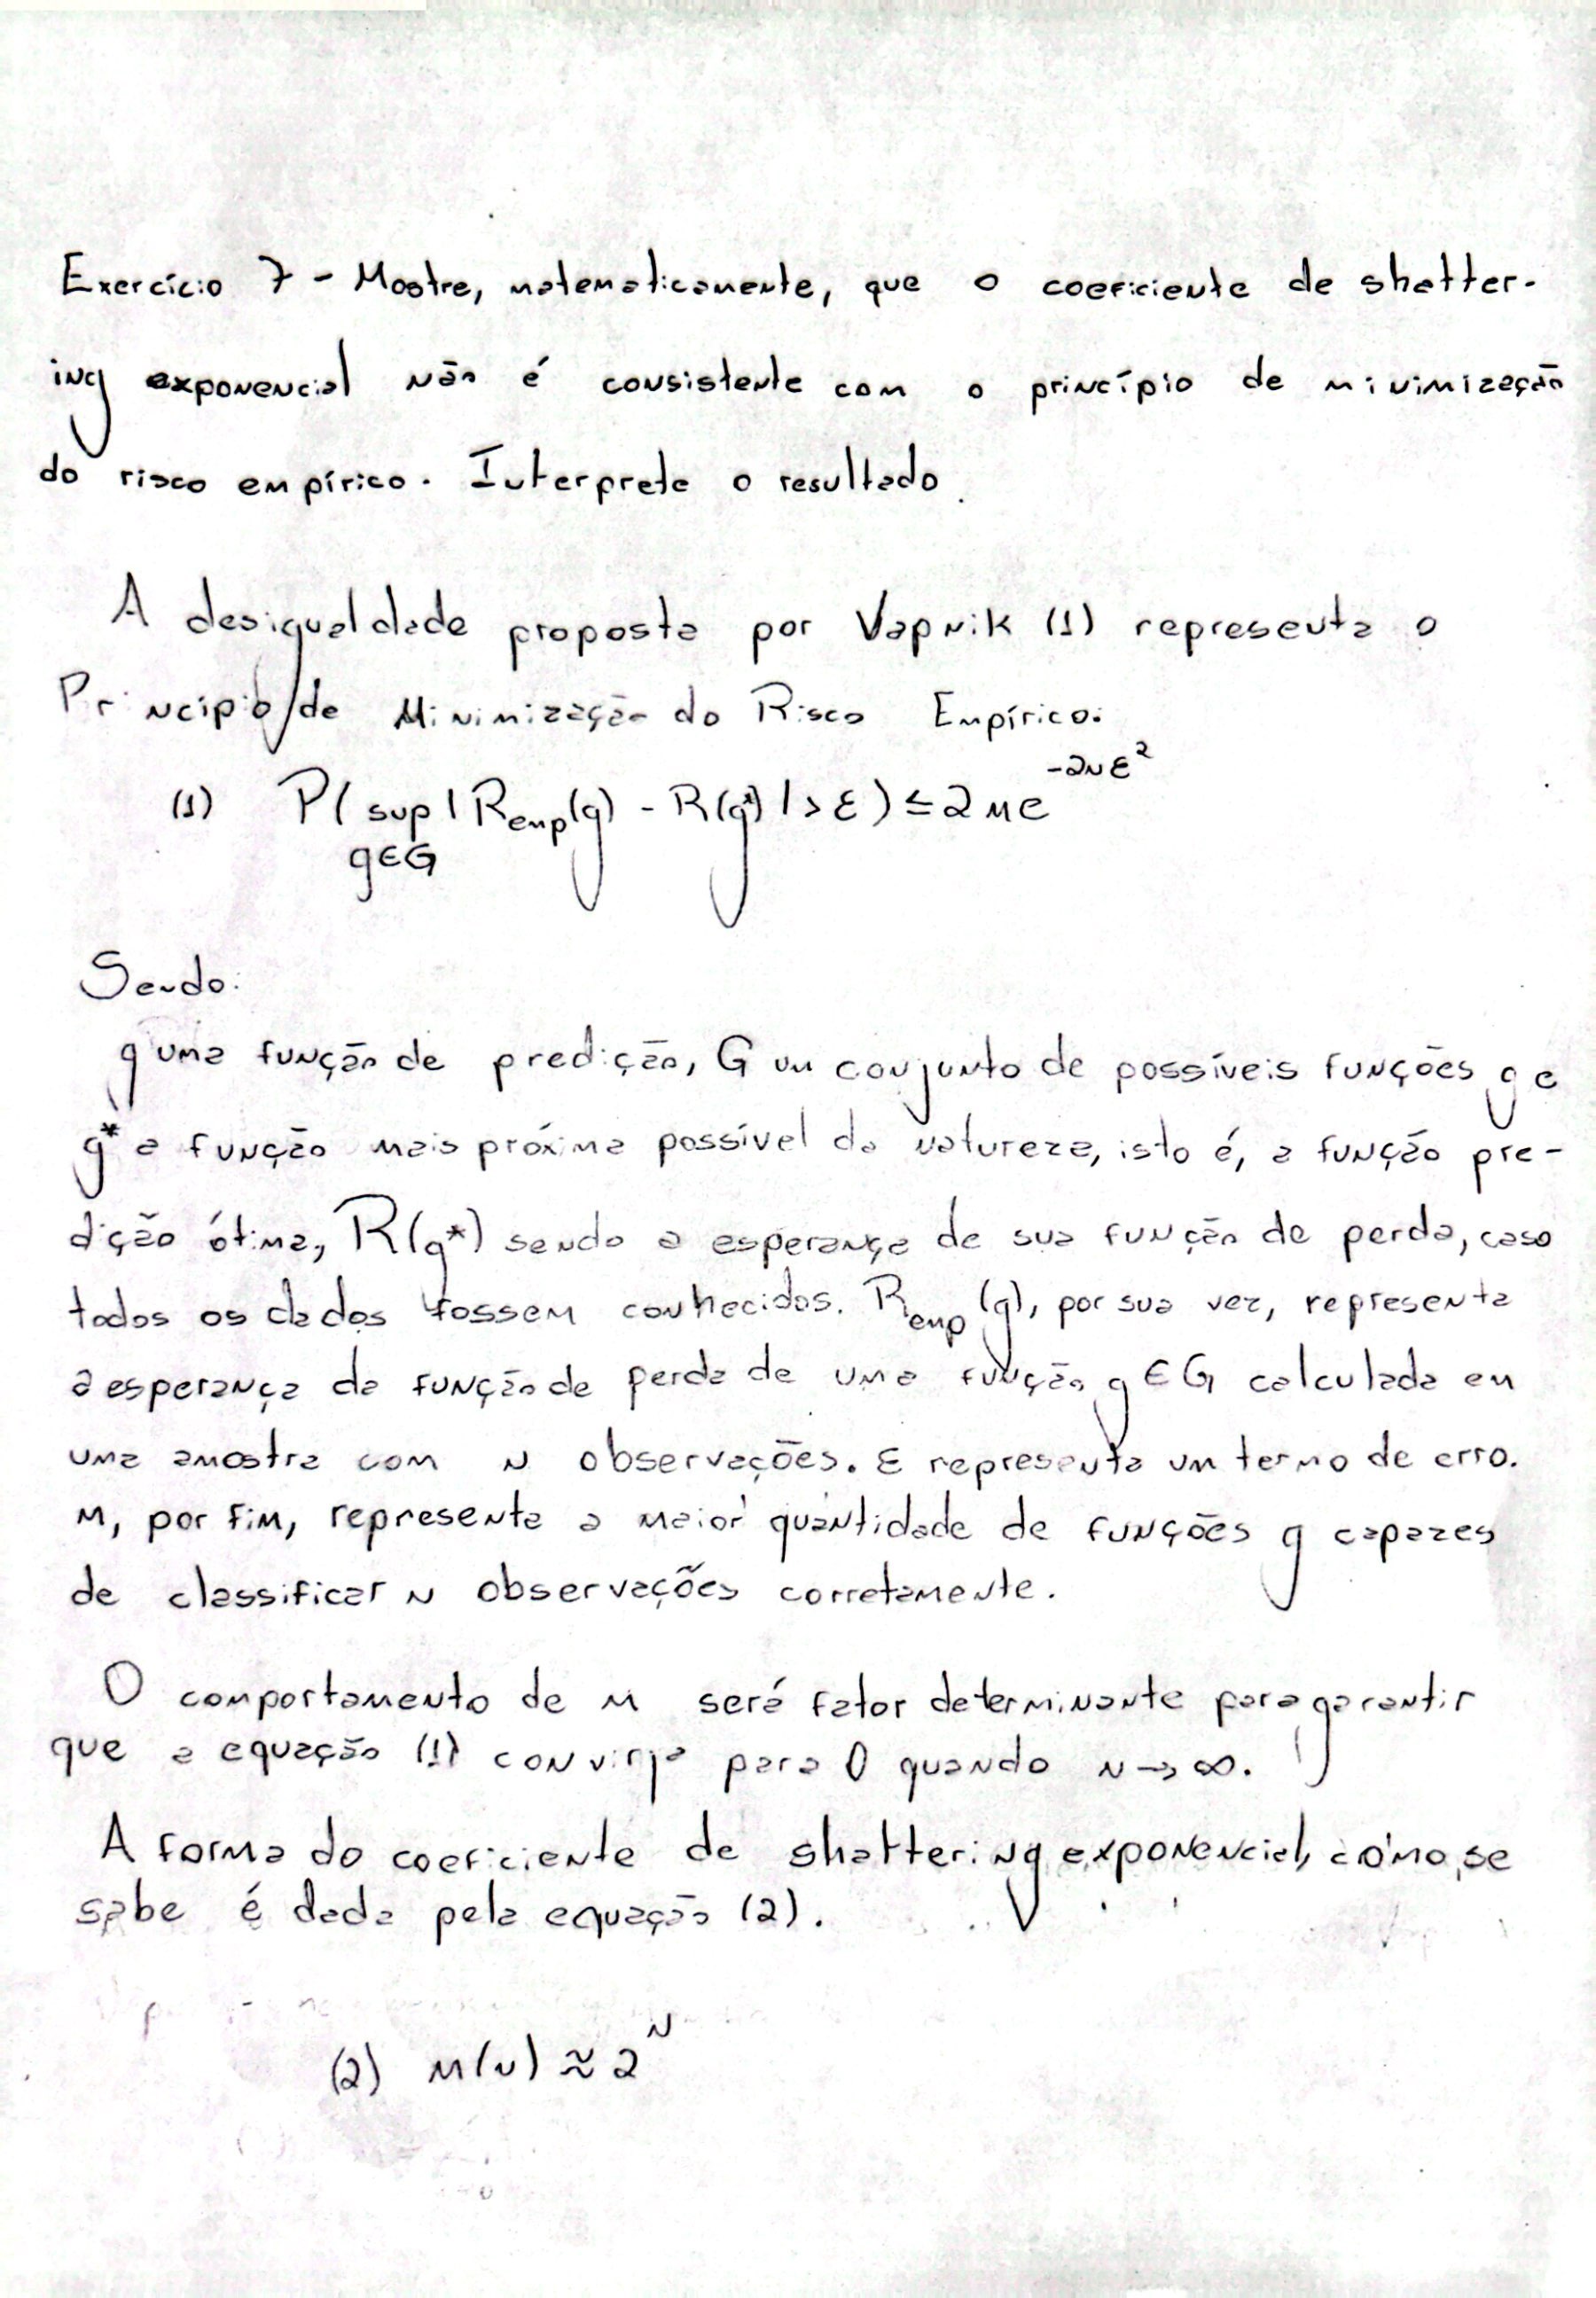 Exercício 7 - Mostre, matematicamente, que o coeficiente de shatter-
ing exponencial não é consistente com o princípio de minimização
do risco empírico. Interprete o resultado.
A desigualdade proposta por Vapnik (1) representa o
Princípio de Minimização do Risco Empírico:
(1) P( sup | R_emp(g) - R(g*) | > ε ) ≤ 2 m e^{-2nε²}
g∈G
Sendo:
g uma função de predição, G um conjunto de possíveis funções g e
g* a função mais próxima possível da natureza, isto é, a função pre-
dição ótima, R(g*) sendo a esperança de sua função de perda, caso
todos os dados fossem conhecidos. R_emp(g), por sua vez, representa
a esperança da função de perda de uma função g ∈ G calculada em
uma amostra com n observações. ε representa um termo de erro.
M, por fim, representa a maior quantidade de funções g capazes
de classificar n observações corretamente.
O comportamento de m será fator determinante para garantir
que a equação (1) convirja para 0 quando n → ∞.
A forma do coeficiente de shattering exponencial, como se
sabe é dada pela equação (2).
(2) m(n) ≈ 2^n